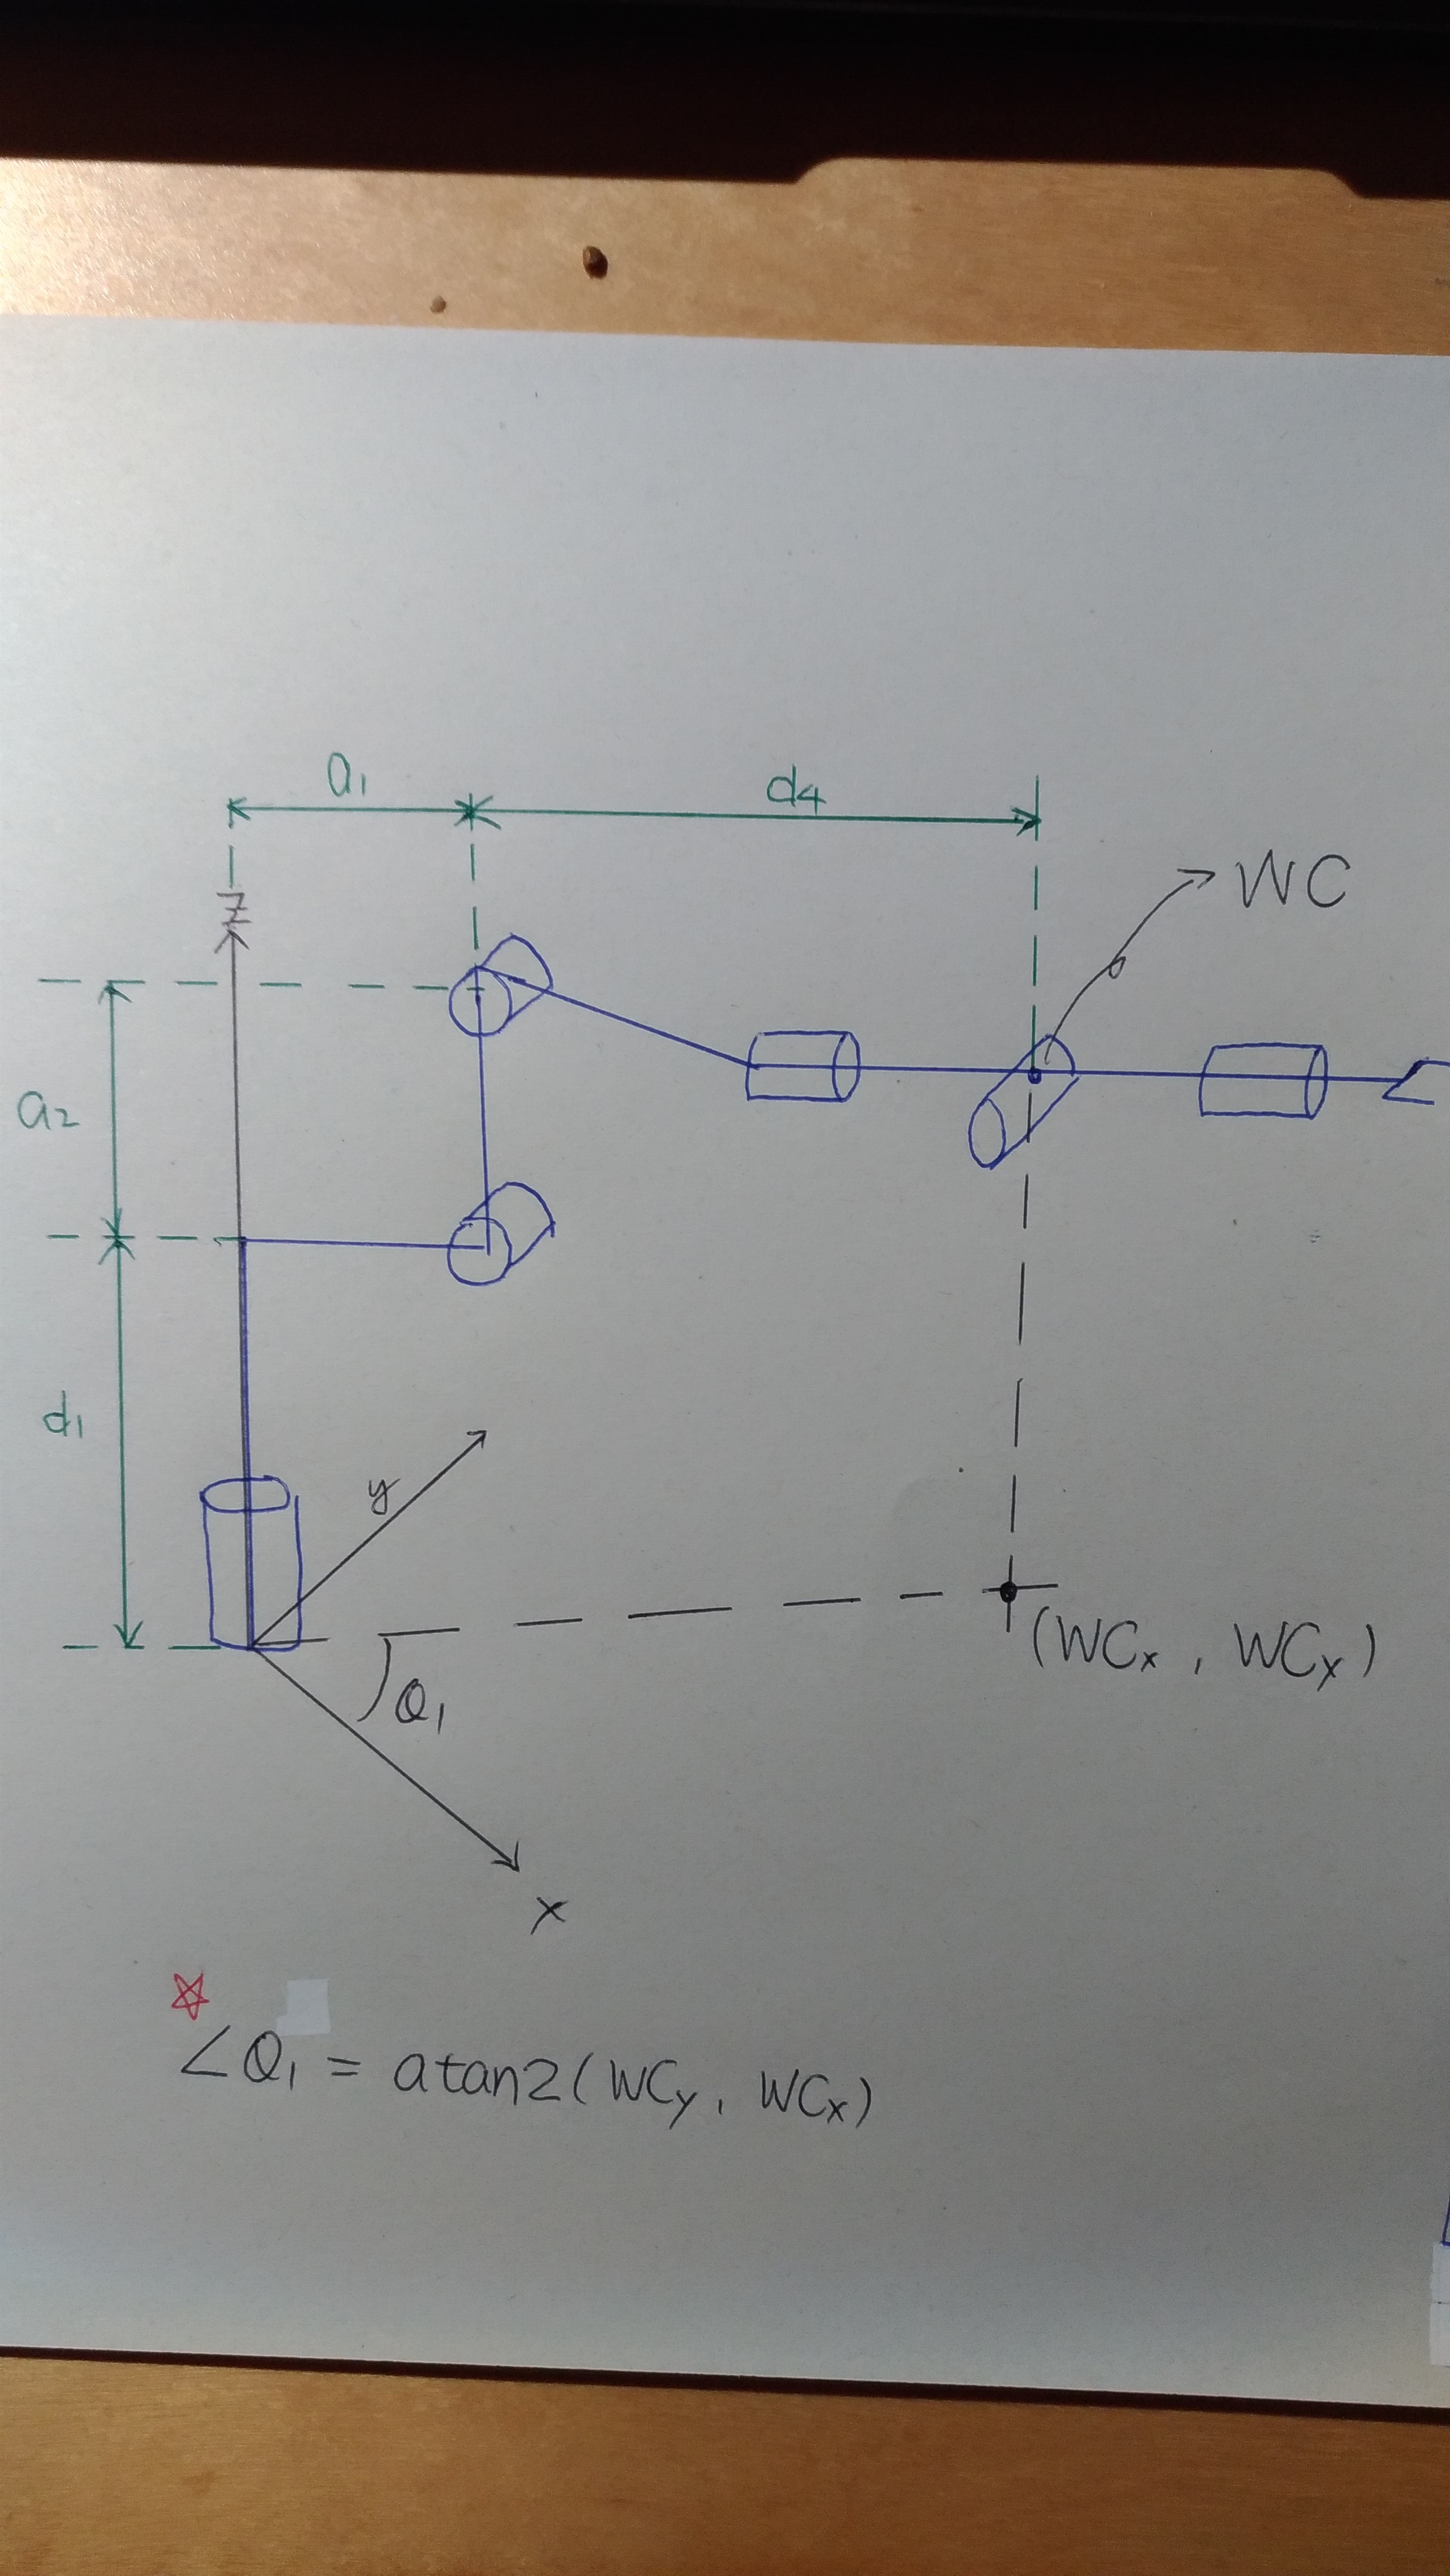 a1
d4
WC
Z
a2
d1
y
θ1
(WCx, WCy)
x
∠θ1 = atan2(WCy, WCx)